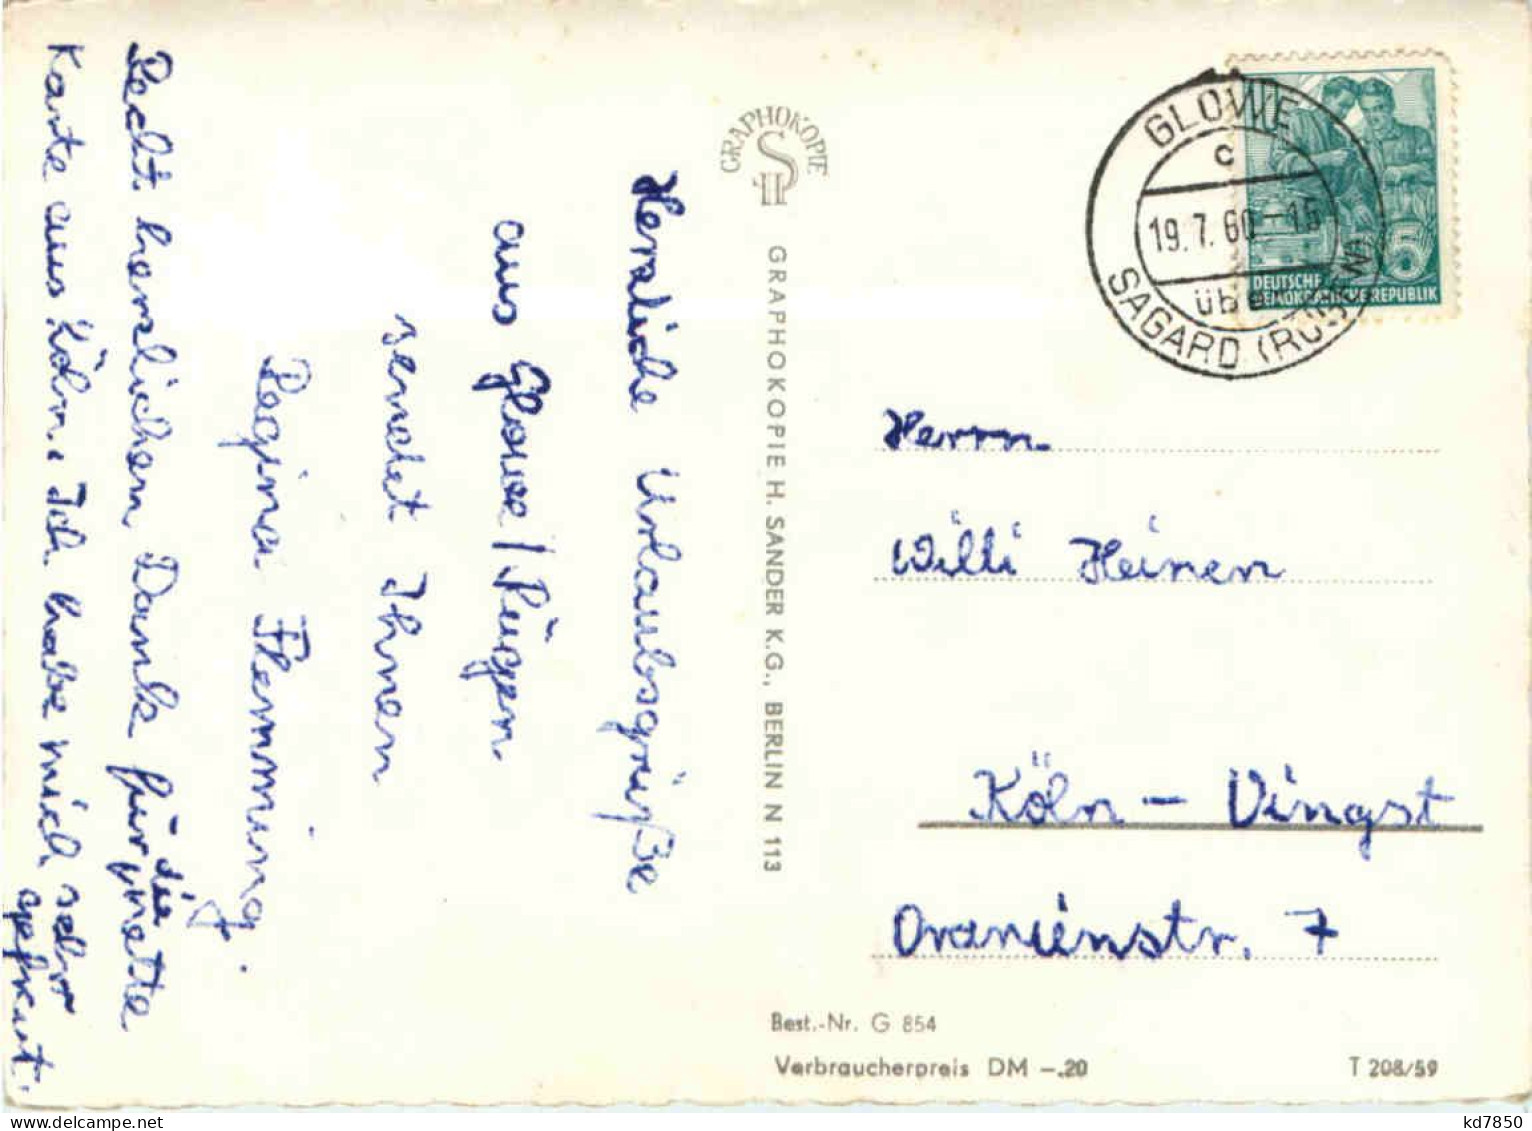 Herzliche Urlaubsgrüße
aus Glowe/Rügen
sendet Ihnen
Regina Flemming.
Recht herzlichen Dank für die nette
Karte aus Köln. Ich habe mich sehr
gefreut.
GRAPHOKOPIE
H S
GRAPHOKOPIE H. SANDER K.G., BERLIN N 113
GLOWE
c
19.7.60-15
über
SAGARD (RÜGEN)
5
DEUTSCHE
DEMOKRATISCHE REPUBLIK
Herrn
Willi Heinen
Köln - Vingst
Oranienstr. 7
Best.-Nr. G 854
Verbraucherpreis DM -.20
T 208/59
kd7850